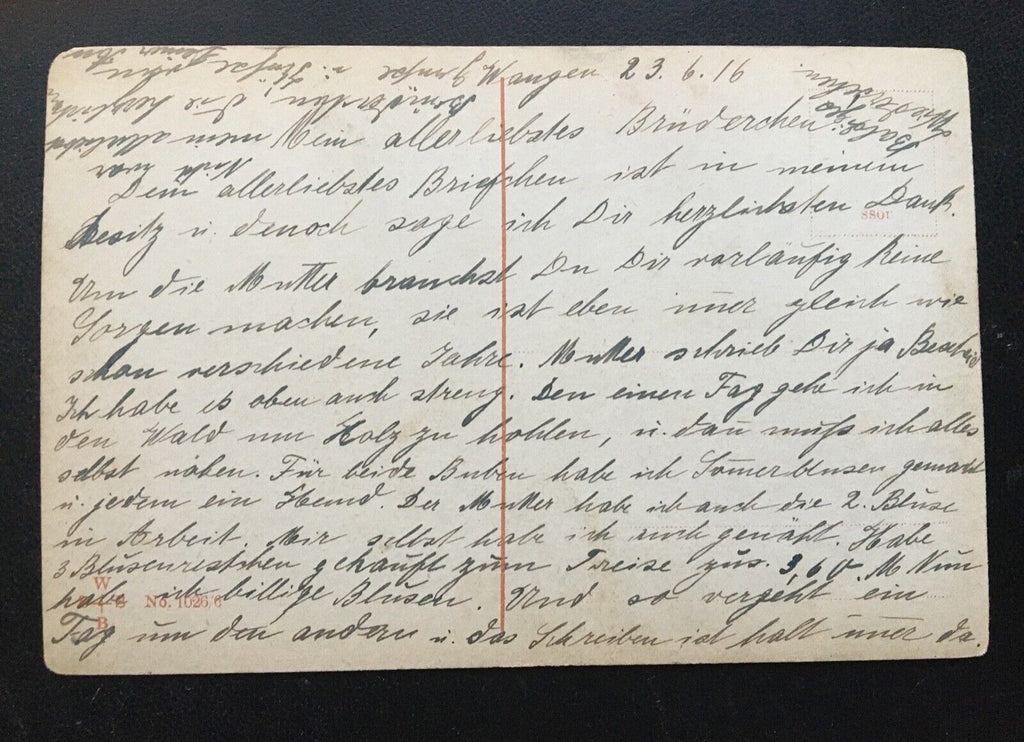 Wangen 23.6.16
Mein allerliebstes Brüderchen!
Dein allerliebstes Briefchen ist in meinem
Besitz u. denoch sage ich Dir herzlichsten Dank.
Um die Mutter brauchst Du Dir vorläufig keine
Sorgen machen, sie ist eben im̄er gleich wie
schon verschiedene Jahre. Mutter schrieb Dir ja Bescheid
Ich habe es eben auch streng. Den einen Tag gehe ich in
den Wald um Holz zu hohlen, u. dan̄ muß ich alles
selbst nähen. Für beide Buben habe ich Som̄erblusen gemacht
u. jedem ein Hemd. Der Mutter habe ich auch die 2. Bluse
in Arbeit. Mir selbst habe ich auch genäht. Habe
3 Blusenrestchen gekauft zum Preise zus. 3,60 M. Nun
habe ich billige Blusen. Und so vergeht ein
Tag um den andern u. das Schreiben ist halt im̄er da.
Noch
mein
Brüderchen die
Grüße u. Küsse
Wiedersehn
W
B
No. 1026/6